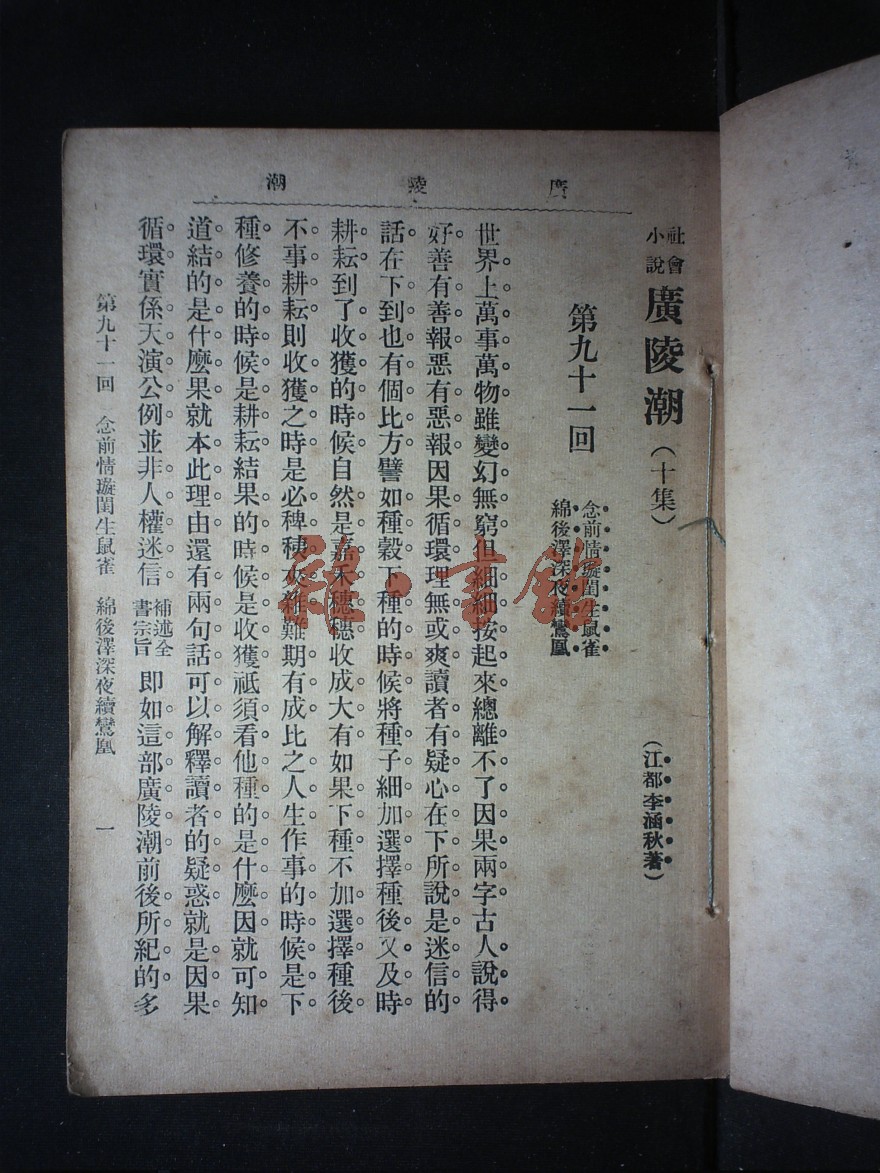 廣陵潮
社會
小說
廣陵潮(十集)
(江都李涵秋著)
第九十一回
念前情璇閨生鼠雀
綿後澤深夜續鸞凰
世界上萬事萬物雖變幻無窮但細細按起來總離不了因果兩字古人說得
好善有善報惡有惡報因果循環理無或爽讀者有疑心在下所說是迷信的
話在下到也有個比方譬如種穀下種的時候將種子細加選擇種後又及時
耕耘到了收獲的時候自然是嘉禾穗穗收成大有如果下種不加選擇種後
不事耕耘則收獲之時是必稗稊夾雜難期有成比之人生作事的時候是下
種修養的時候是耕耘結果的時候是收獲祇須看他種的是什麼因就可知
道結的是什麼果就本此理由還有兩句話可以解釋讀者的疑惑就是因果
循環實係天演公例並非人權迷信補述全書宗旨即如這部廣陵潮前後所紀的多
第九十一回 念前情璇閨生鼠雀 綿後澤深夜續鸞凰 一
雜·書館